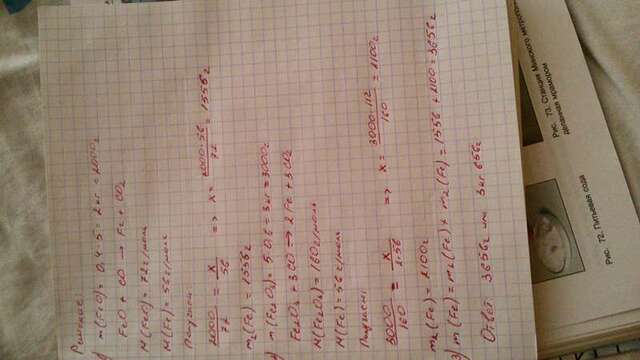 Решение:
1) m(FeO) = 0,4·5 = 2 кг = 2000г
FeO + CO → Fe + CO₂
M(FeO) = 72г/моль
M(Fe) = 56г/моль
Получаем:
2000/72 = x/56 => x = 2000·56/72 = 1556г
m₁(Fe) = 1556г
2) m(Fe₂O₃) = 5·0,6 = 3кг = 3000г
Fe₂O₃ + 3CO → 2Fe + 3CO₂
M(Fe₂O₃) = 160г/моль
M(Fe) = 56г/моль
Получаем:
3000/160 = x/2·56 => x = 3000·112/160 = 2100г
m₂(Fe) = 2100г
3) m(Fe) = m₁(Fe) + m₂(Fe) = 1556 + 2100 = 3656г
Ответ: 3656г или 3кг 656г
Рис. 72. Питьевая сода
Рис. 73. Станция Минского метропо-
деланная мрамором